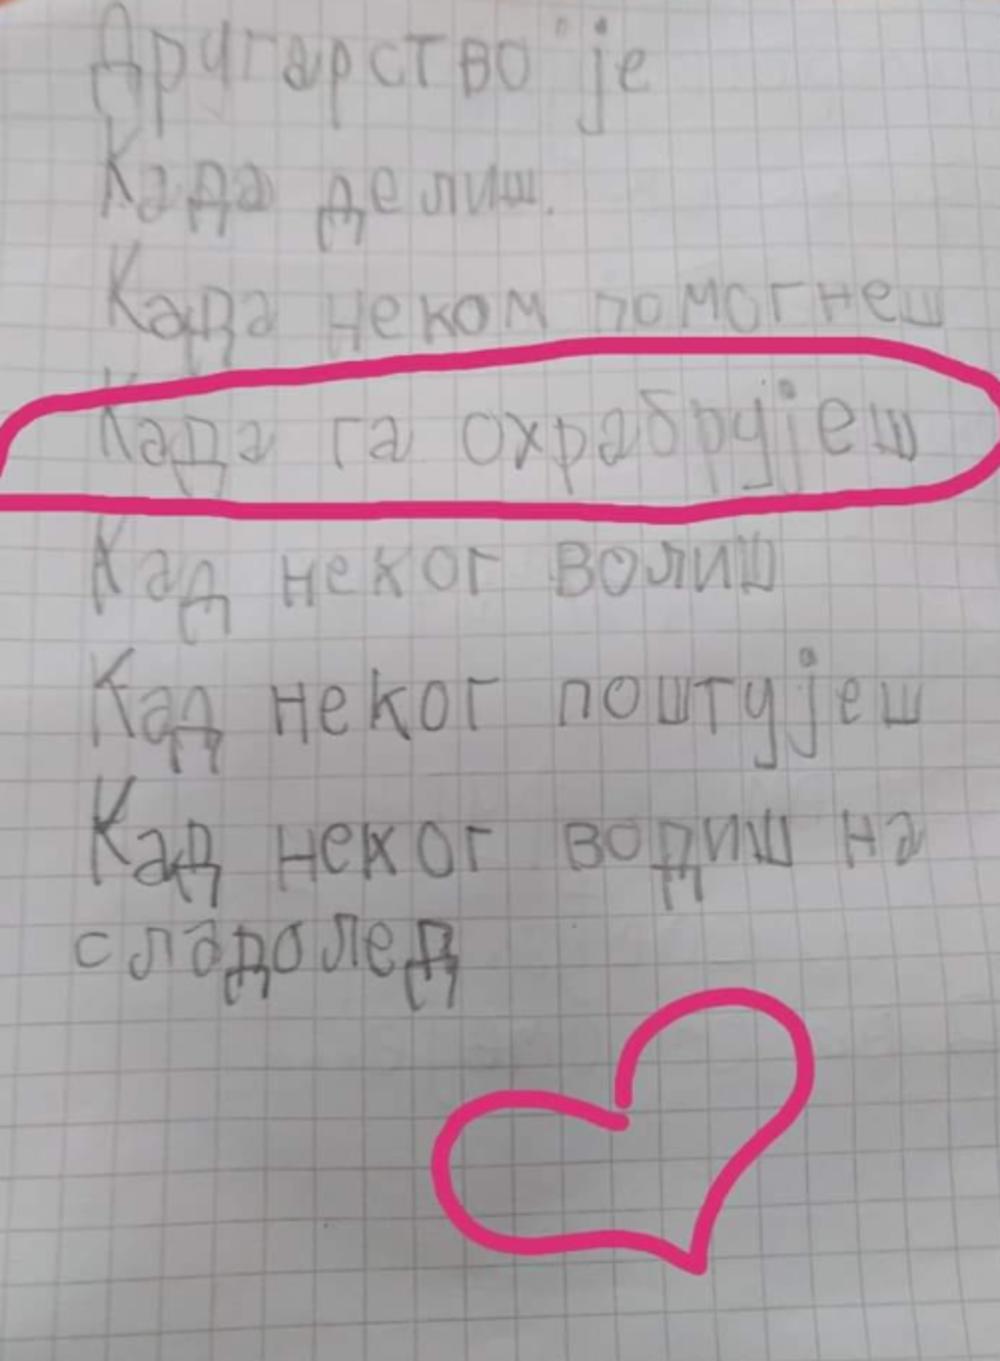 Другарство је
Када делиш.
Када неком помогнеш
Када га охрабрујеш
Кад неког волиш
Кад неког поштујеш
Кад неког водиш на
сладолед